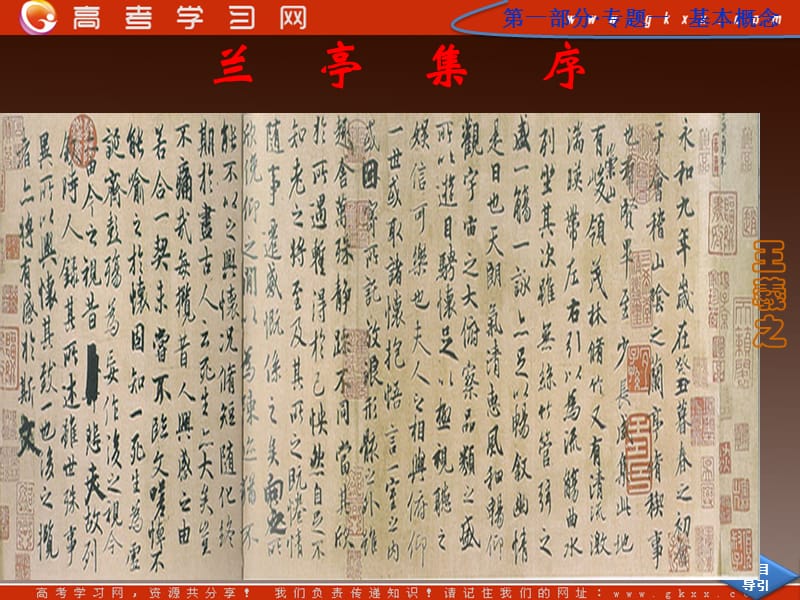 高考学习网
第一部分 专题一 基本概念
www.gkxx.com
兰亭集序
永和九年歲在癸丑暮春之初會
于會稽山陰之蘭亭脩稧事
也羣賢畢至少長咸集此地
有崇山峻領茂林脩竹又有清流激
湍暎帶左右引以為流觴曲水
列坐其次雖無絲竹管絃之
盛一觴一詠亦足以暢敘幽情
是日也天朗氣清惠風和暢仰
觀宇宙之大俯察品類之盛
所以遊目騁懷足以極視聽之
娛信可樂也夫人之相與俯仰
一世或取諸懷抱悟言一室之內
或因寄所託放浪形骸之外雖
趣舍萬殊靜躁不同當其欣
於所遇暫得於己怏然自足不
知老之將至及其所之既惓情
隨事遷感慨係之矣向之所
欣俛仰之閒以為陳迹猶不
能不以之興懷況脩短隨化終
期於盡古人云死生亦大矣豈
不痛哉每攬昔人興感之由
若合一契未嘗不臨文嗟悼不
能喻之於懷固知一死生為虛
誕齊彭殤為妄作後之視今
亦由今之視昔悲夫故列
敘時人錄其所述雖世殊事
異所以興懷其致一也後之攬
者亦將有感於斯文
王羲之
目
导引
高考学习网，资源共分享！ 我们负责传递知识！请记住我们的网址：www.gkxx.c